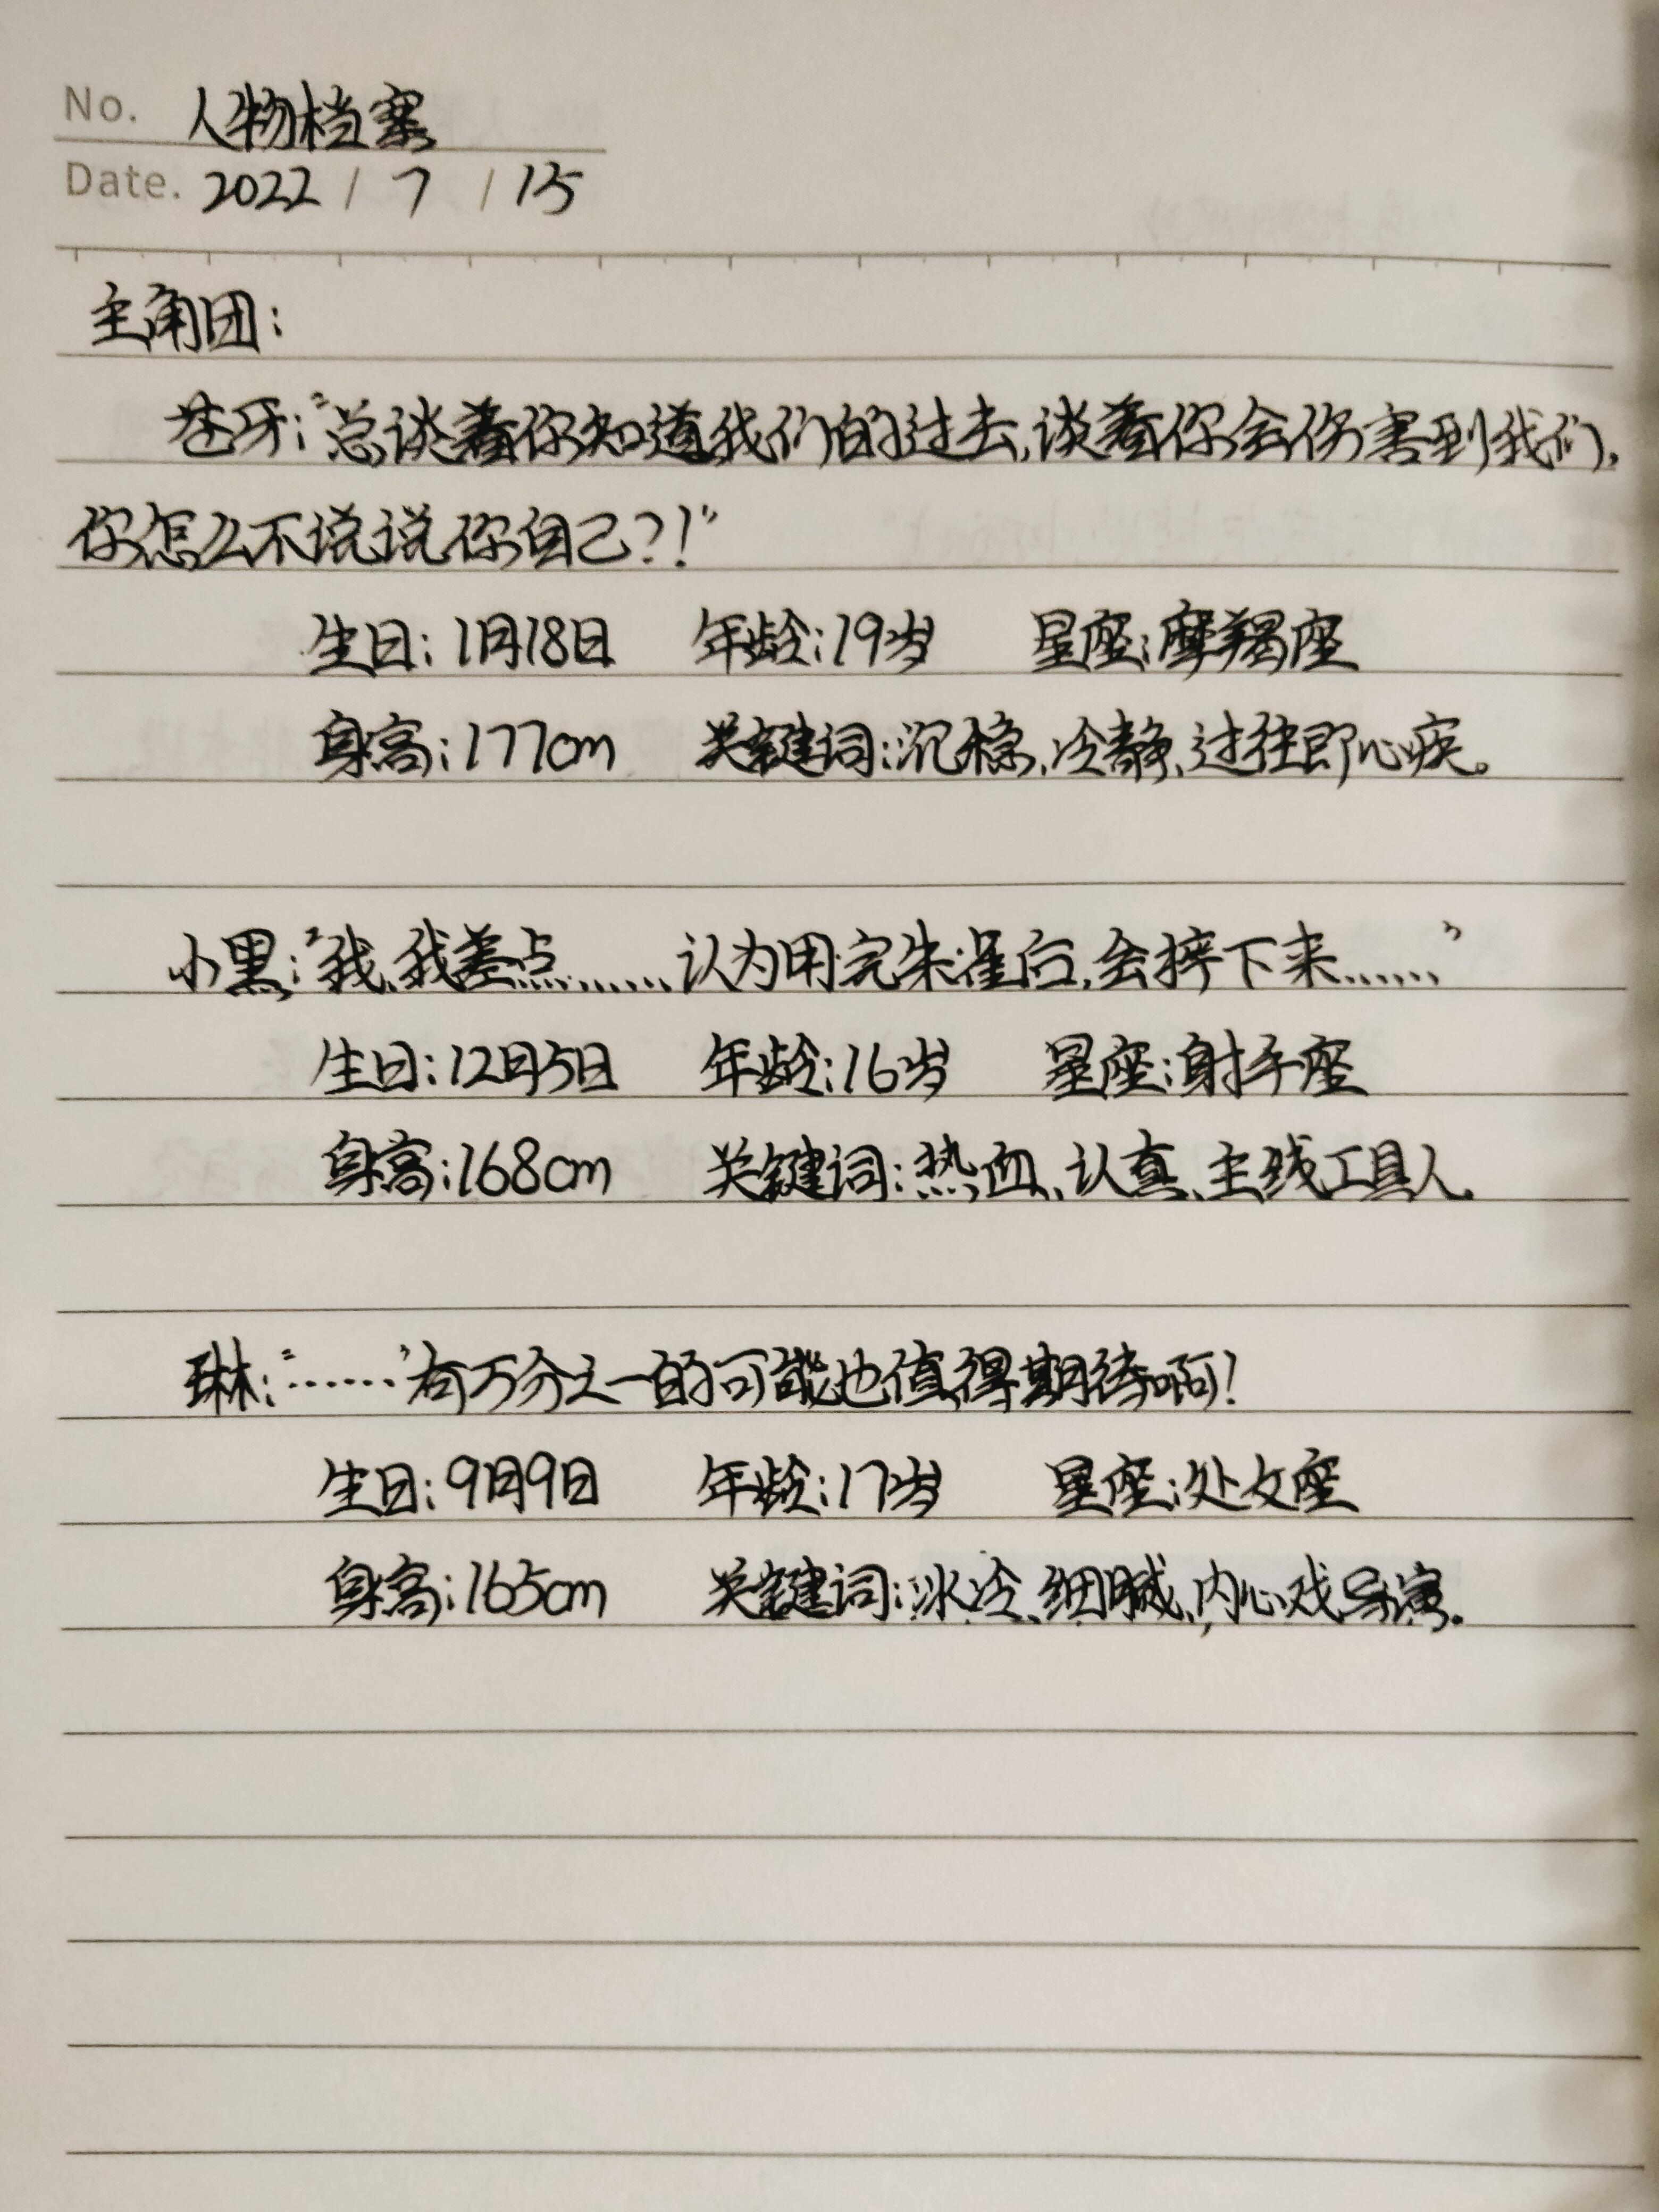 No. 人物档案
Date. 2022 / 7 / 15
主角团：
苍牙：“总谈着你知道我们的过去，谈着你会伤害到我们，
你怎么不说说你自己？！”
生日：1月18日 年龄：19岁 星座：摩羯座
身高：177cm 关键词：沉稳、冷静、过往即心疾。
小黑：“我、我差点……认为用完朱雀后，会摔下来……”
生日：12月5日 年龄：16岁 星座：射手座
身高：168cm 关键词：热血、认真、主线工具人。
琳：“……”有万分之一的可能也值得期待啊！
生日：9月9日 年龄：17岁 星座：处女座
身高：165cm 关键词：冰冷、细腻、内心戏导演。